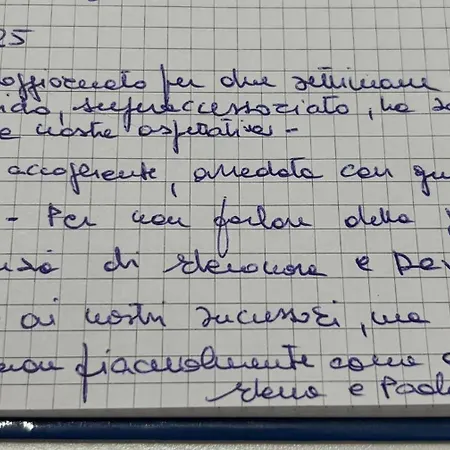 25
oggiornato per due settimane
superaccessoriato, ha
e nostre aspettative -
accogliente, arredata con
- Per non parlare della
di Eleonora e
ai nostri successori, ma
piacevolmente come
Elena e Paol